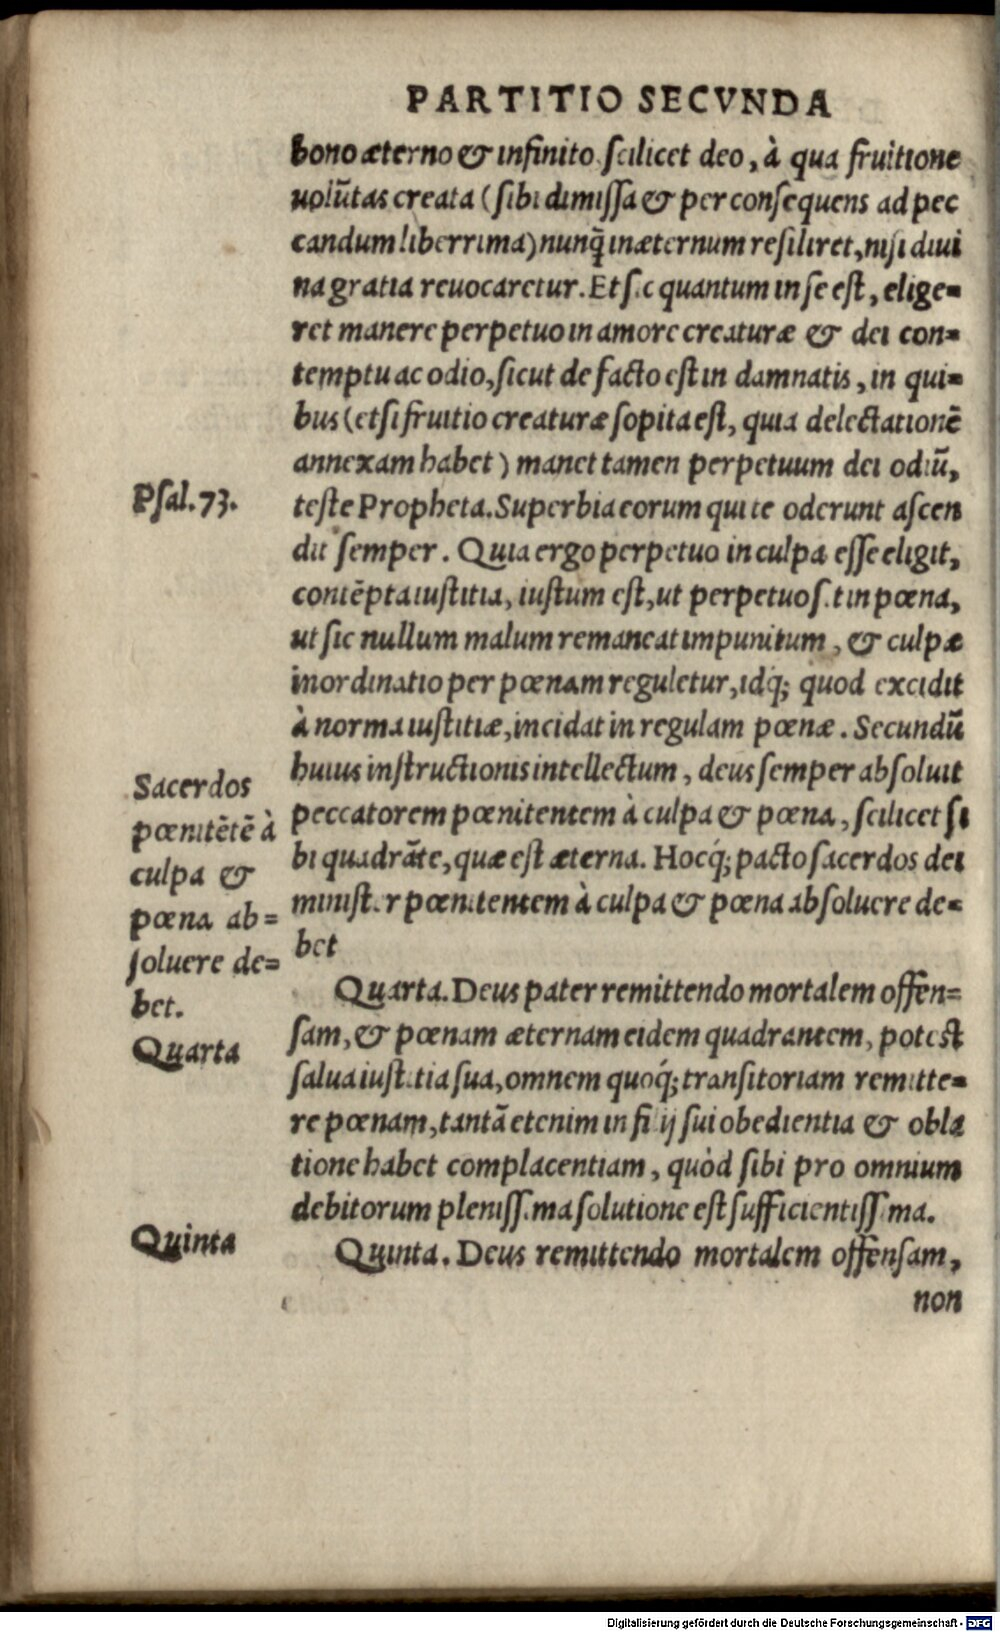 PARTITIO SECVNDA
bono æterno & infinito scilicet deo, à qua fruitione
uolũtas creata (sibi dimissa & per consequens ad pec
candum liberrima) nunq̃ in æternum resiliret, nisi diui
na gratia reuocaretur. Et sic quantum in se est, elige=
ret manere perpetuo in amore creaturæ & dei con=
temptu ac odio, sicut de facto est in damnatis, in qui=
bus (etsi fruitio creaturæ sopita est, quia delectationẽ
annexam habet) manet tamen perpetuum dei odiũ,
Psal. 73.
teste Propheta. Superbia eorum qui te oderunt ascen
dit semper. Quia ergo perpetuo in culpa esse eligit,
contẽpta iustitia, iustum est, ut perpetuo sit in pœna,
ut sic nullum malum remaneat impunitum, & culpæ
inordinatio per pœnam reguletur, idq́; quod excidit
à norma iustitiæ, incidat in regulam pœnæ. Secundũ
huius instructionis intellectum, deus semper absoluit
peccatorem pœnitentem à culpa & pœna, scilicet si
bi quadrãte, quæ est æterna. Hocq́; pacto sacerdos dei
minister pœnitentem à culpa & pœna absoluere de=
bet
Sacerdos
pœnitẽtẽ à
culpa &
pœna ab=
soluere de=
bet.
Quarta
Quarta. Deus pater remittendo mortalem offen=
sam, & pœnam æternam eidem quadrantem, potest
salua iustitia sua, omnem quoq́; transitoriam remitte=
re pœnam, tantã etenim in filij sui obedientia & obla
tione habet complacentiam, quòd sibi pro omnium
debitorum plenissima solutione est sufficientissima.
Quinta
Quinta. Deus remittendo mortalem offensam,
non
Digitalisierung gefördert durch die Deutsche Forschungsgemeinschaft - DFG